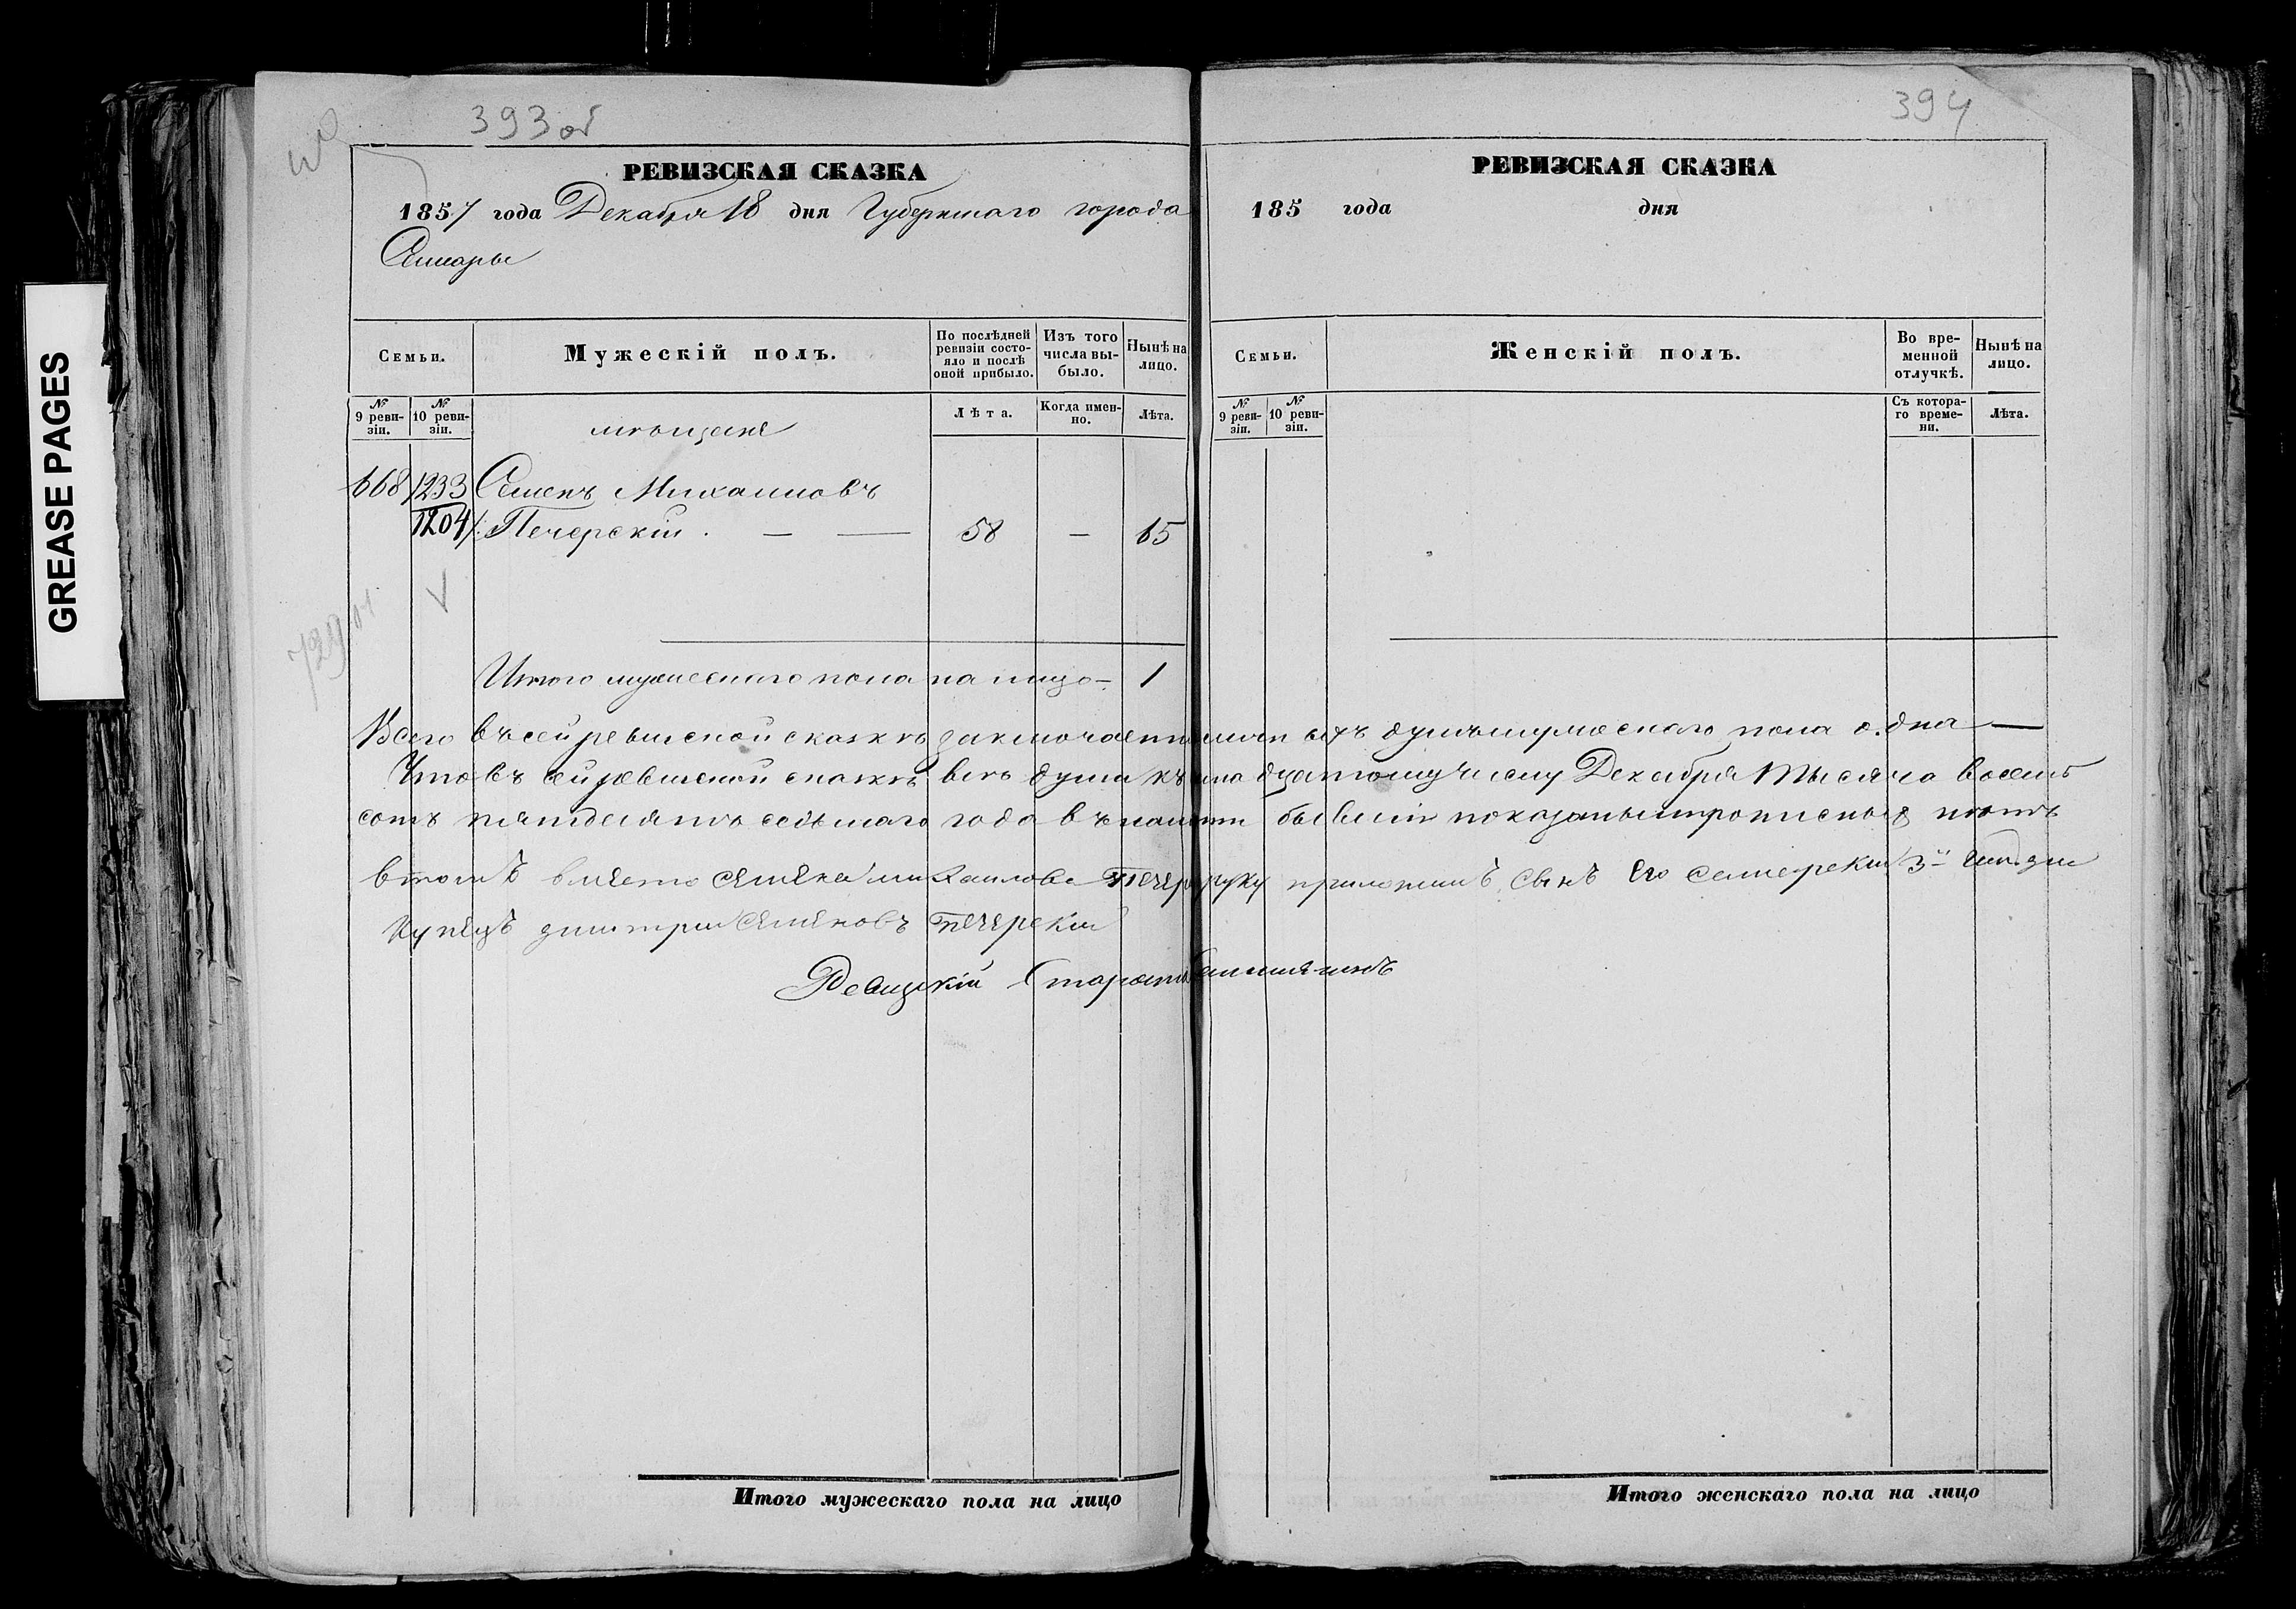 GREASE PAGES
393 об
РЕВИЗСКАЯ СКАЗКА
1857 года Декабря 18 дня Губернскаго города
Самары
Семьи.
Мужескій полъ.
По послѣдней ревизіи состояло и послѣ оной прибыло.
Изъ того числа выбыло.
Нынѣ на лицо.
№ 9 ревизіи.
№ 10 ревизіи.
мѣщане
Лѣта.
Когда именно.
Лѣта.
668 1233 Семенъ Михаиловъ
1204 Печерскій. — — 58 — 65
V
Итого мужескаго пола на лицо — 1
394
РЕВИЗСКАЯ СКАЗКА
185 года дня
Семьи.
Женскій полъ.
Во временной отлучкѣ.
Нынѣ на лицо.
№ 9 ревизіи.
№ 10 ревизіи.
Съ котораго времени.
Лѣта.
Всего въ сей ревизской сказкѣ заключается наличныхъ душъ мужескаго пола одна —
Что въ сей ревизской сказкѣ всѣ души къ числу Декабря тысяча восемь
сотъ пятьдесятъ седьмаго года въ показаны и прописныхъ нѣтъ
втомъ вместо семена михаилова Печер руку приложилъ сынъ его самарски 3й гилдзии
купецъ дмитри семеновъ печерски
Ревизскій Староста
Итого мужескаго пола на лицо
Итого женскаго пола на лицо